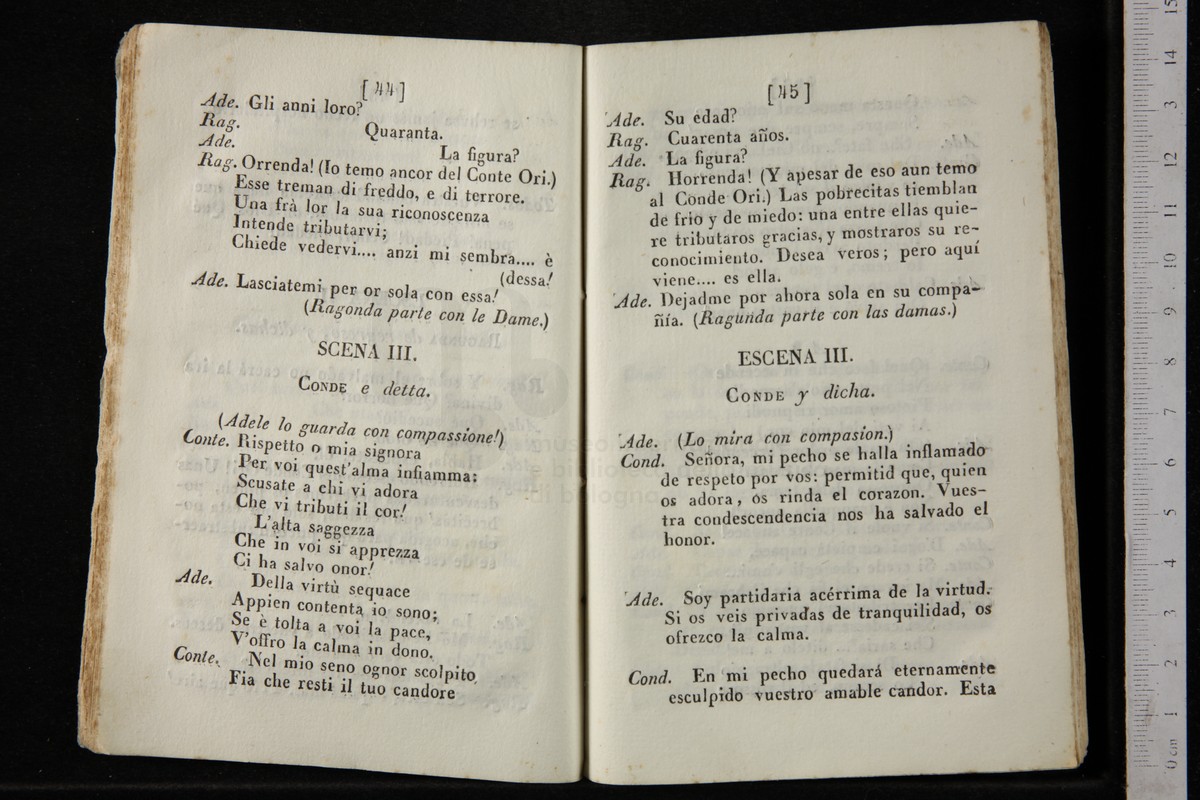 [ 44 ]
Ade. Gli anni loro?
Rag. Quaranta.
Ade. La figura?
Rag. Orrenda! (Io temo ancor del Conte Ori.)
Esse treman di freddo, e di terrore.
Una frà lor la sua riconoscenza
Intende tributarvi;
Chiede vedervi.... anzi mi sembra.... è
(dessa!
Ade. Lasciatemi per or sola con essa!
(Ragonda parte con le Dame.)
SCENA III.
CONDE e detta.
(Adele lo guarda con compassione!)
Conte. Rispetto o mia signora
Per voi quest'alma infiamma:
Scusate a chi vi adora
Che vi tributi il cor!
L'alta saggezza
Che in voi si apprezza
Ci ha salvo onor!
Ade. Della virtù sequace
Appien contenta io sono;
Se è tolta a voi la pace,
V'offro la calma in dono.
Conte. Nel mio seno ognor scolpito
Fia che resti il tuo candore
[ 45 ]
Ade. Su edad?
Rag. Cuarenta años.
Ade. La figura?
Rag. Horrenda! (Y apesar de eso aun temo
al Conde Ori.) Las pobrecitas tiemblan
de frio y de miedo: una entre ellas quie-
re tributaros gracias, y mostraros su re-
conocimiento. Desea veros; pero aquí
viene.... es ella.
Ade. Dejadme por ahora sola en su compa-
ñía. (Ragunda parte con las damas.)
ESCENA III.
CONDE y dicha.
Ade. (Lo mira con compasion.)
Cond. Señora, mi pecho se halla inflamado
de respeto por vos: permitid que, quien
os adora, os rinda el corazon. Vues-
tra condescendencia nos ha salvado el
honor.
Ade. Soy partidaria acérrima de la virtud.
Si os veis privadas de tranquilidad, os
ofrezco la calma.
Cond. En mi pecho quedará eternamente
esculpido vuestro amable candor. Esta